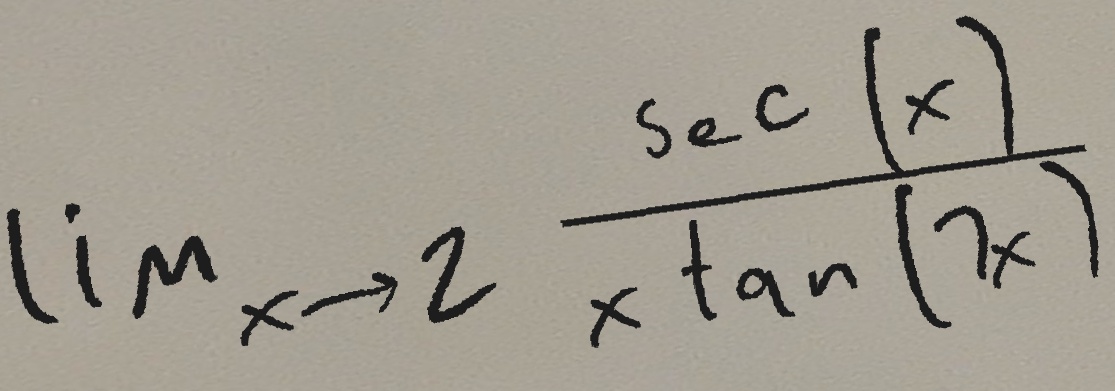 lim x→2 sec(x) / x tan(7x)